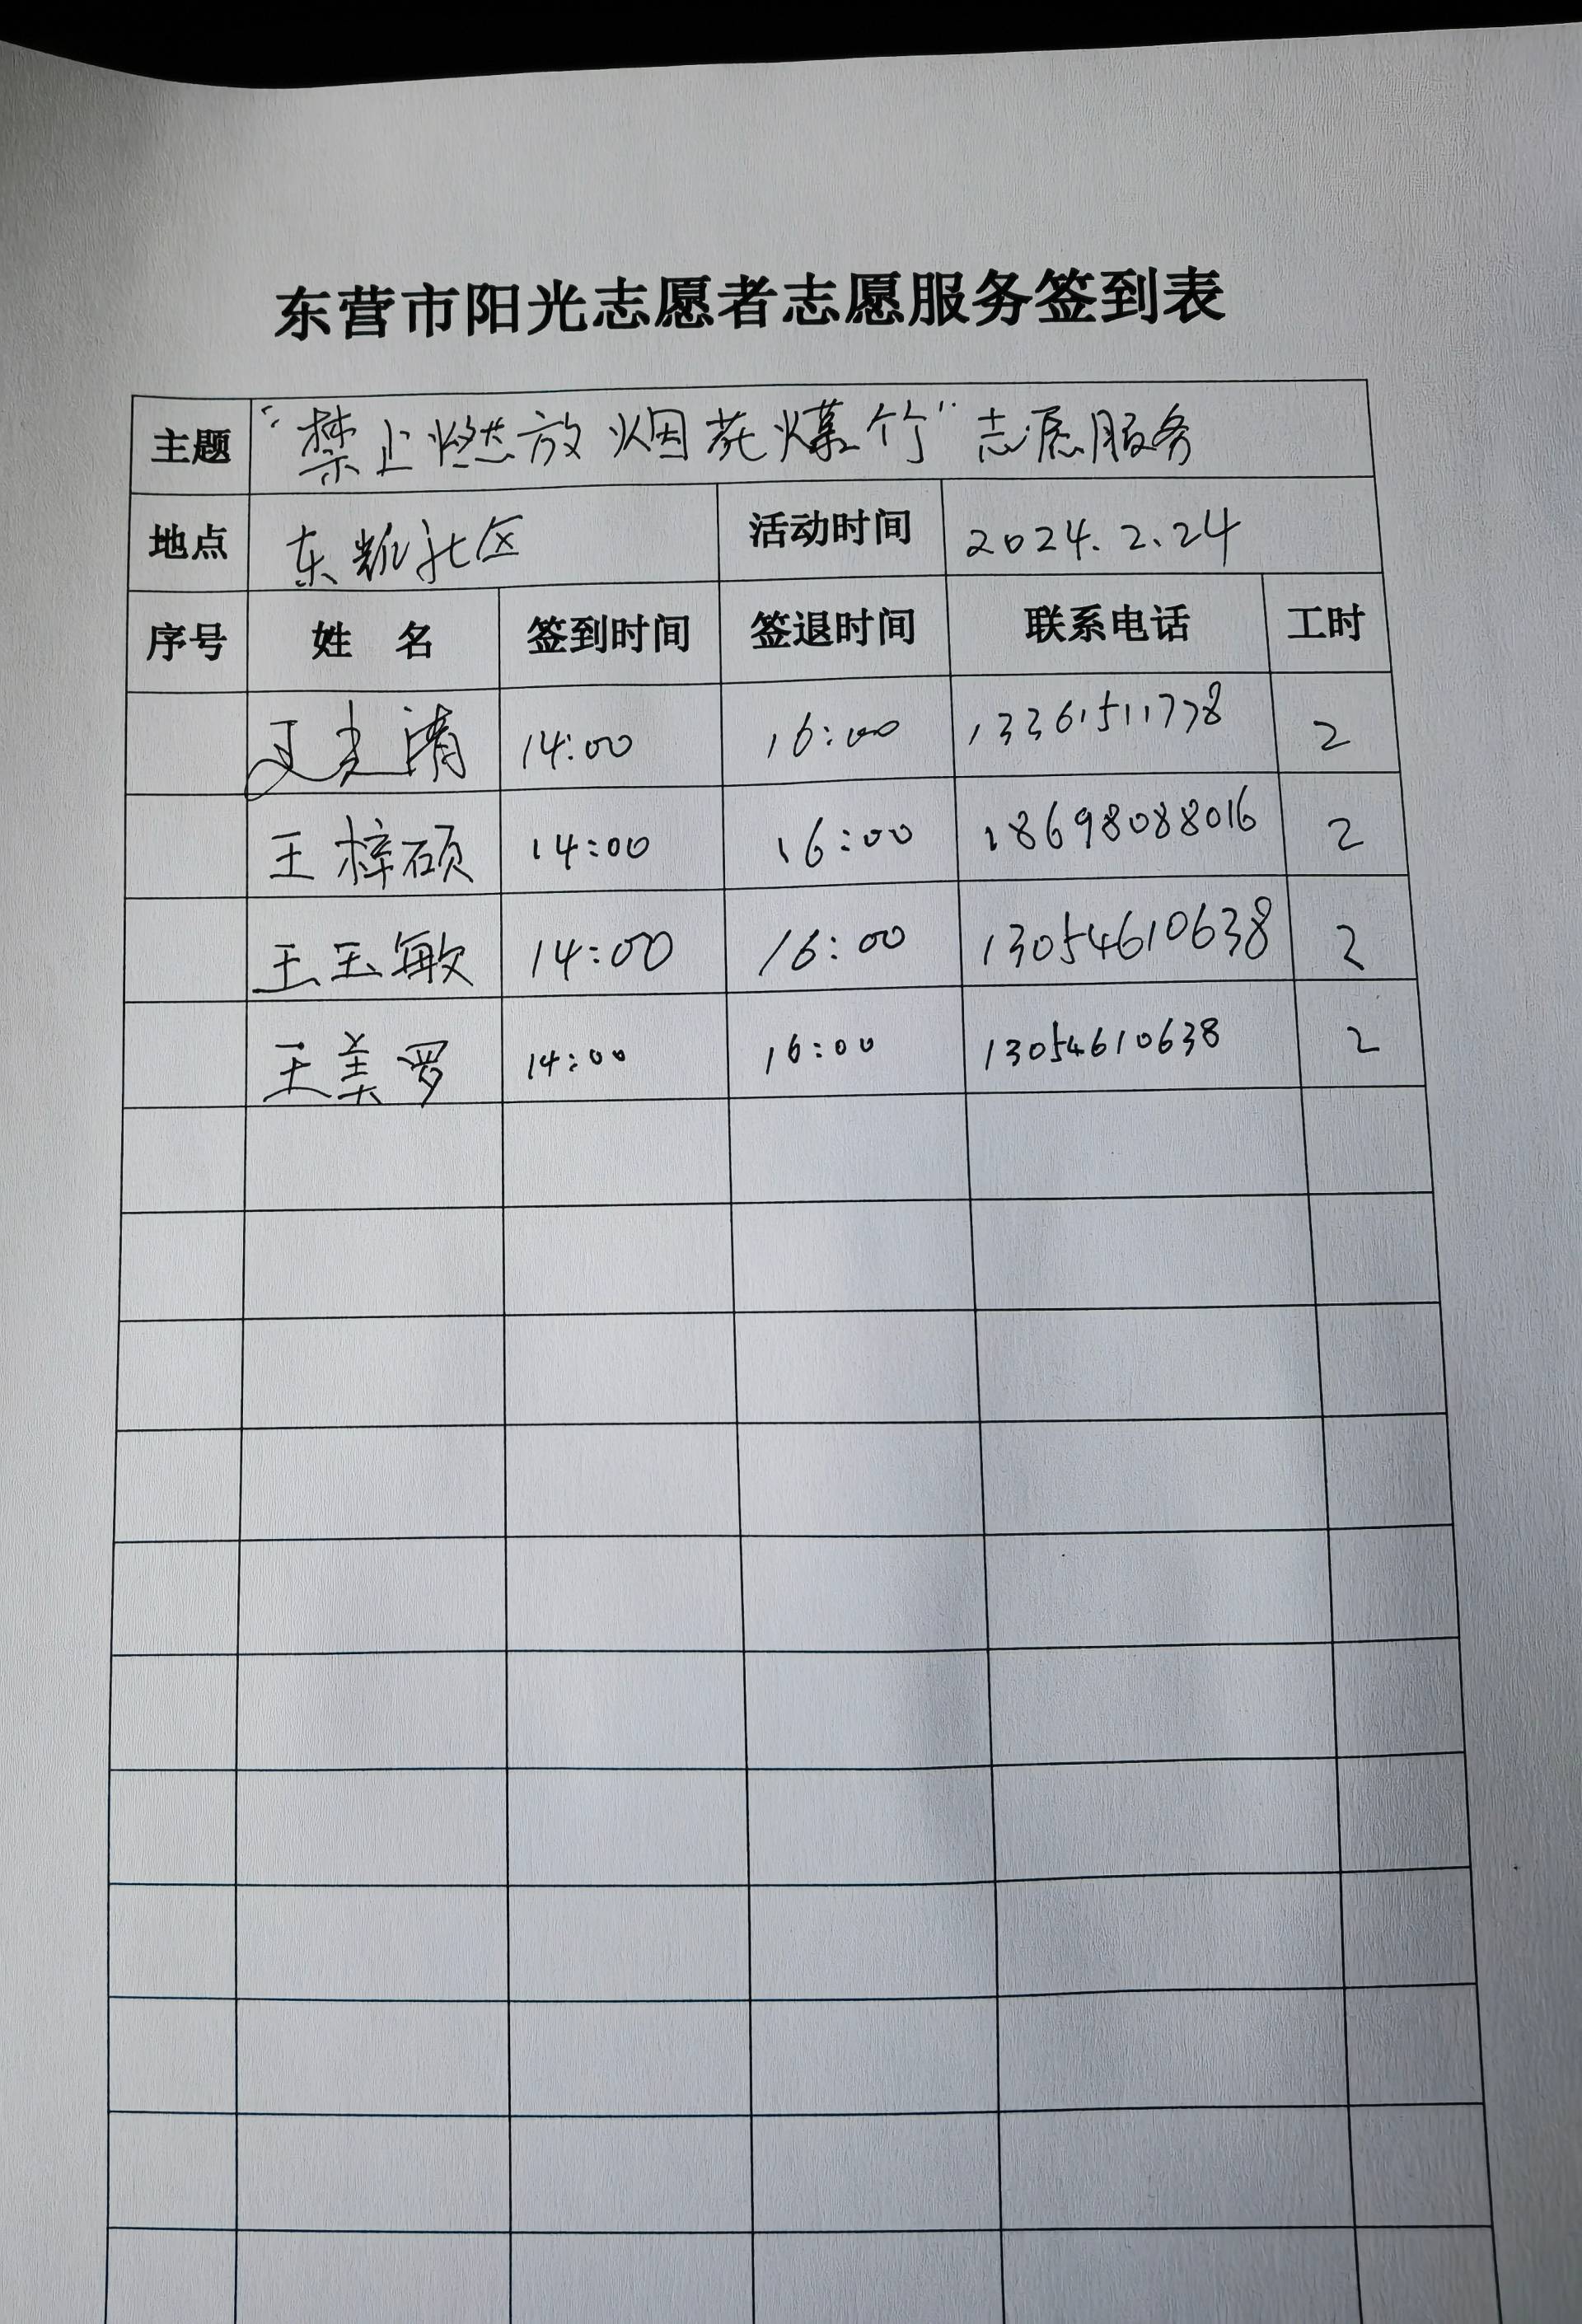 东营市阳光志愿者志愿服务签到表
主题 "禁止燃放烟花爆竹"志愿服务
地点 东凯社区 活动时间 2024.2.24
序号 姓 名 签到时间 签退时间 联系电话 工时
14:00 16:00 13361511778 2
王梓硕 14:00 16:00 18698088016 2
王玉敏 14:00 16:00 13054610638 2
王美罗 14:00 16:00 13054610638 2